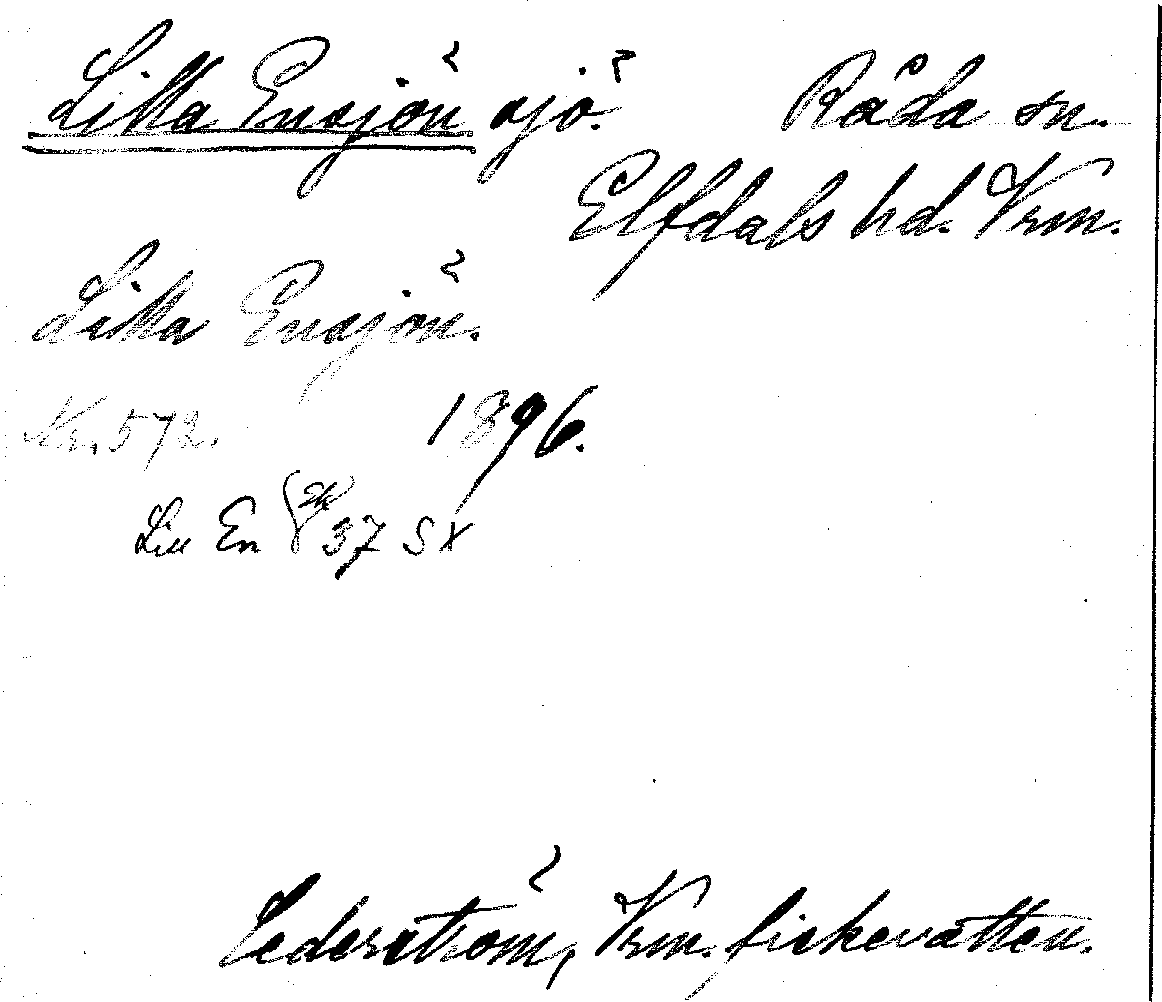 Lilla Ensjön sjö. Råda sn.
Elfdals hd. Vrm.
Lilla Ensjön.
Nr. 572. 1896.
En 37 SX
Cederström, Vrm. fiskevatten.